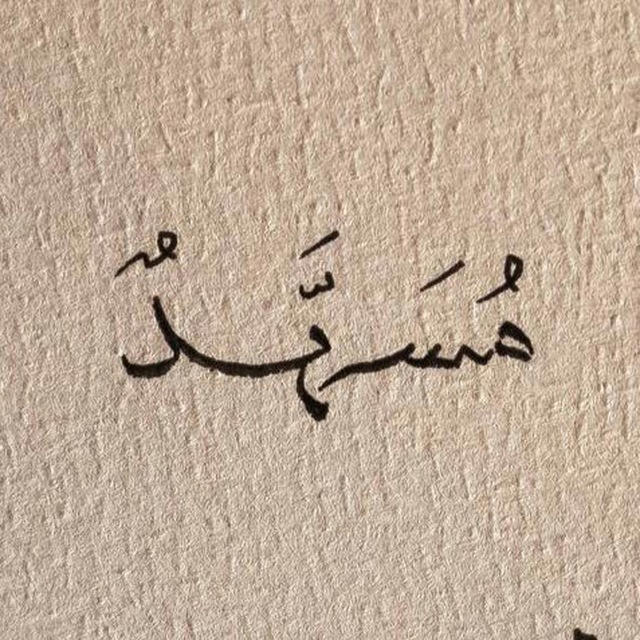 مُسَهَّدٌ